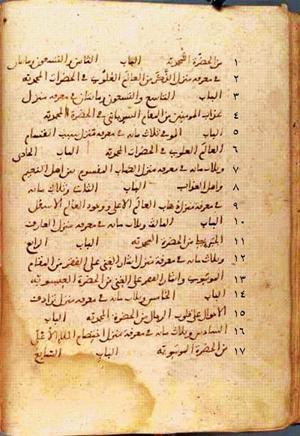 ١ من الحضرة المحمدية الباب الثامن والتسعون ومائتان
٢ في معرفة منزل الذكر من العالم العلوي في الحضرات المحمدية
٣ الباب التاسع والتسعون ومائتان في معرفة منزل
٤ عذاب المؤمنين من المقام السرياني في الحضرة المحمدية
٥ الباب الموفي ثلاث مائة في معرفة منزل سبب انقسام
٦ العالم العلوي في الحضرات المحمدية الباب الحادي
٧ وثلاث مائة في معرفة منزل الكتاب المقسوم بين اهل النعيم
٨ واهل العذاب الباب الثاني وثلاث مائة
٩ في معرفة منزل ذهاب العالم الاعلى ووجود العالم الاسفل
١٠ الباب الثالث وثلاث مائة في معرفة منزل العارف
١١ الجبرئيلي من الحضرة المحمدية الباب الرابع
١٢ وثلاث مائة في معرفة منزل ايثار الغنى على الفقر من المقام
١٣ الموسوي وايثار الفقر على الغنى من الحضرة العيسوية
١٤ الباب الخامس وثلاث مائة في معرفة منزل ترادف
١٥ الاحوال على قلوب الرجال من الحضرة المحمدية الباب
١٦ السادس وثلاث مائة في معرفة منزل اختصام الملاء الاعلى
١٧ من الحضرة الموسوية الباب السابع